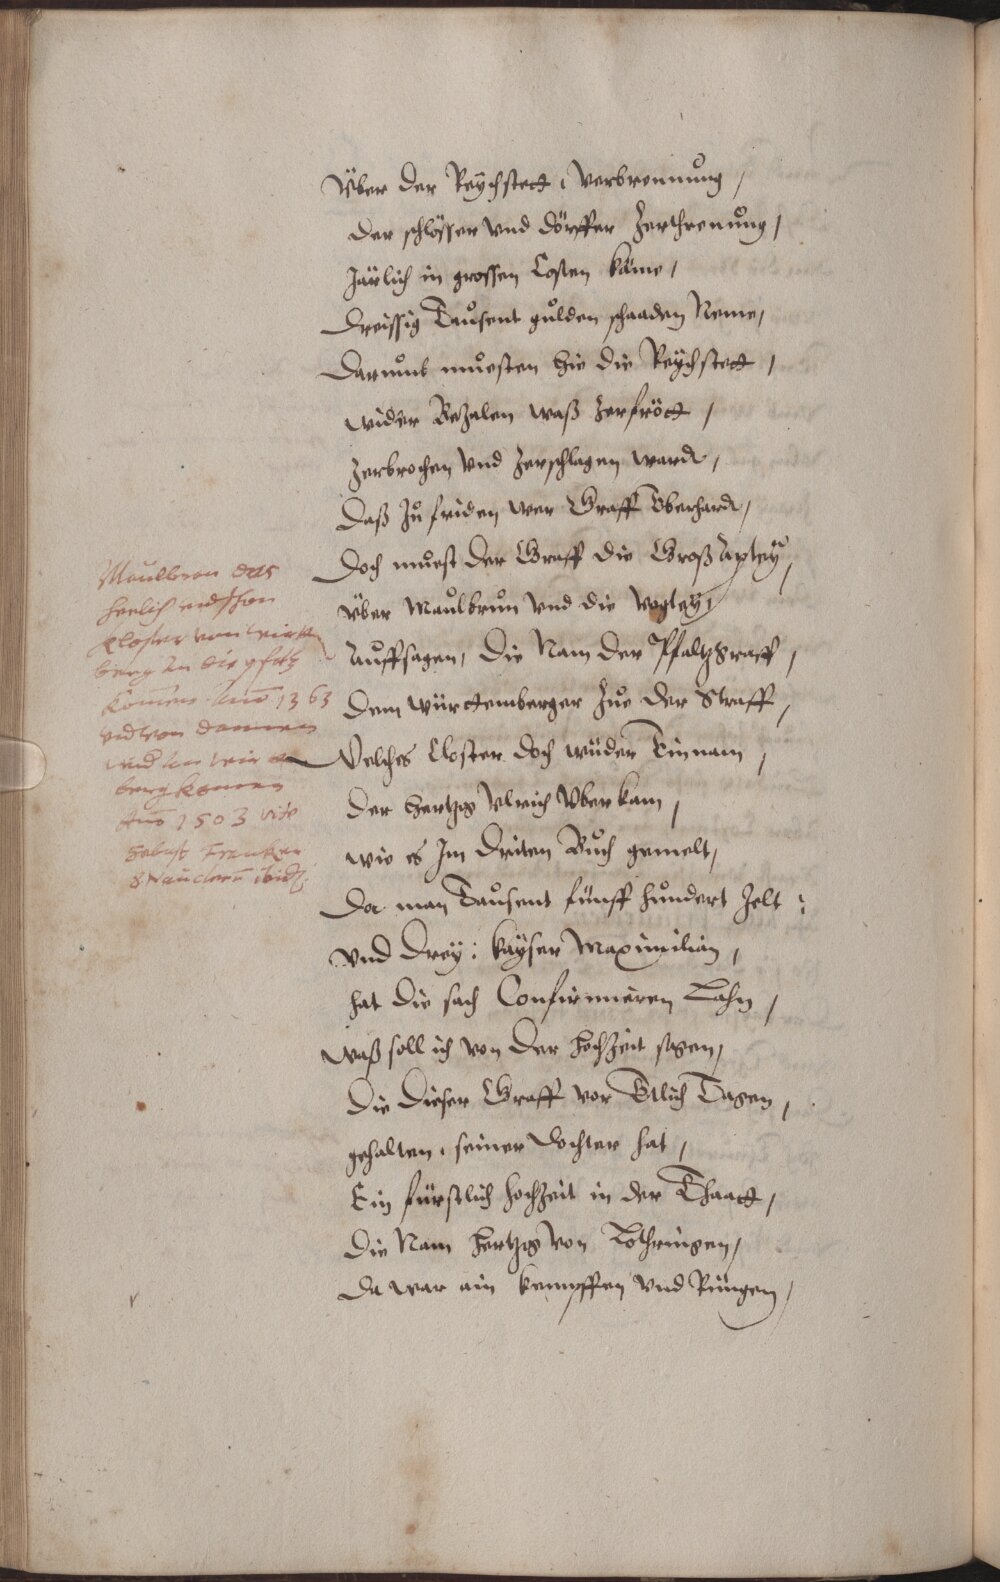 Über der Reychstett, verbrennung /
der schlösser und dörffer Zerthrenung /
Järlich in grossen Costen käme /
Dreissig Tausent gulden schaaden Neme /
Darumb muesten hie die Reychstett /
wider Bezalen waß Zerfrött /
Zerbrochen und Zerschlagen ward /
Daß zu friden wer Graff Eberhard /
Doch muest der Graff die Groß Aptey /
über Maulbrun und die vogtey /
Auffsagen, die Nam der Pfaltzgraff /
Dem württemberger Zue der Straff /
Welches Closter doch wüder Einnam /
Der Hertzog Ulrich Überkam /
wie es Im driten Buch gemelt /
Da man Tausent fünff hundert Zelt :
Und drey : kayser Maximilian /
hat die sach Confirmieren Lahn /
waß soll ich von der hochzeit sagen /
Die dieser Graff vor Etlich Tagen /
gehalten, seiner dochter hat /
Ein fürstlich hochzeit in der Thaatt /
Die Nam Hertzog von Lothringen /
Da war ain kempffen und Ringen /
Maulbron das
herlich und schon
Closter von wirtt
berg In die pfaltz
komen Anno 1363
und von dannen
wid an wirtt
berg komen
Anno 1503 vide
Sebast Francken
& Nauclerum ibid.